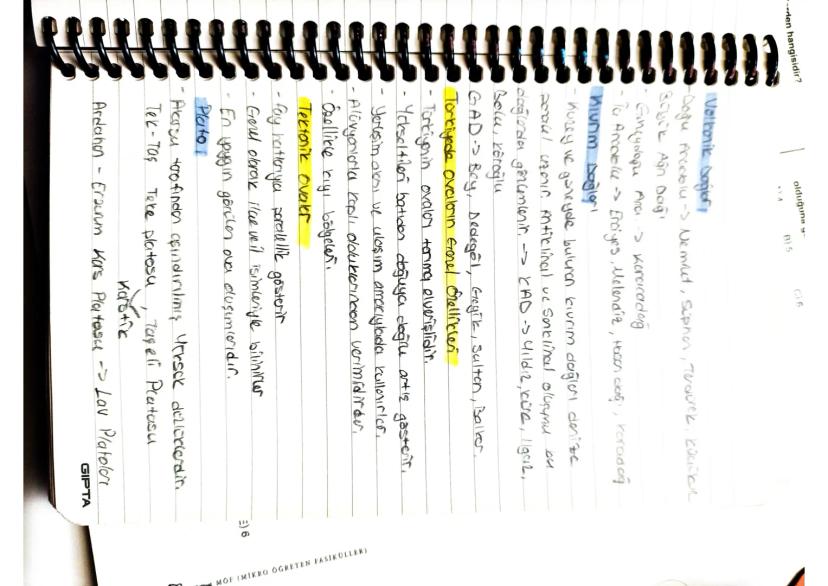 Volkanik Dağlar
- Doğu Anadolu -> Nemrut, Süphan, Tendürek, Küçük
Büyük Ağrı Dağı
- Güneydoğu Ana -> Karacadağ
- İç Anadolu -> Erciyes, Melendiz, Hasan dağı, Karadağ
Kıvrım Dağları
- Kuzey ve güneyde bulunan kıvrım dağları denize
paralel uzanır. Antiklinal ve Senklinal oluşumu bu
dağlarda gözlemlenir. -> KAD -> Yıldız, Küre, Ilgaz,
Bolu, Köroğlu
GAD -> Bey, Dedegöl, Geyik, Sultan, Bolkar.
Türkiyede Ovaların Genel Özellikleri
- Türkiyenin ovaları tarıma elverişlidir.
- Yükseltileri batıdan doğuya doğru artış gösterir.
- Yerleşim alanı ve ulaşım amacıylada kullanılırlar.
- Alüvyonlarla kaplı olduklarından verimlidirler.
- Özellikle kıyı bölgeleri.
Tektonik Ovalar
- Fay hattarıya paralellik gösterir
- Genel olarak ilçe ve il isimleriyle bilinirler
- En yaygın görülen ova oluşumlarıdır.
Plato
- Akarsu tarafından aşındırılmış yüksek düzlüklerdir.
Tek-Taş Teke platosu, Taşeli Platosu
Karstik
Ardahan - Erzurum Kars Platosu -> Lav Platoları
GIPTA
rden hangisidir?
olduğuna g-
B) 5
C) 6
E) 6
MÖF (MİKRO ÖĞRETEN FASİKÜLLER)